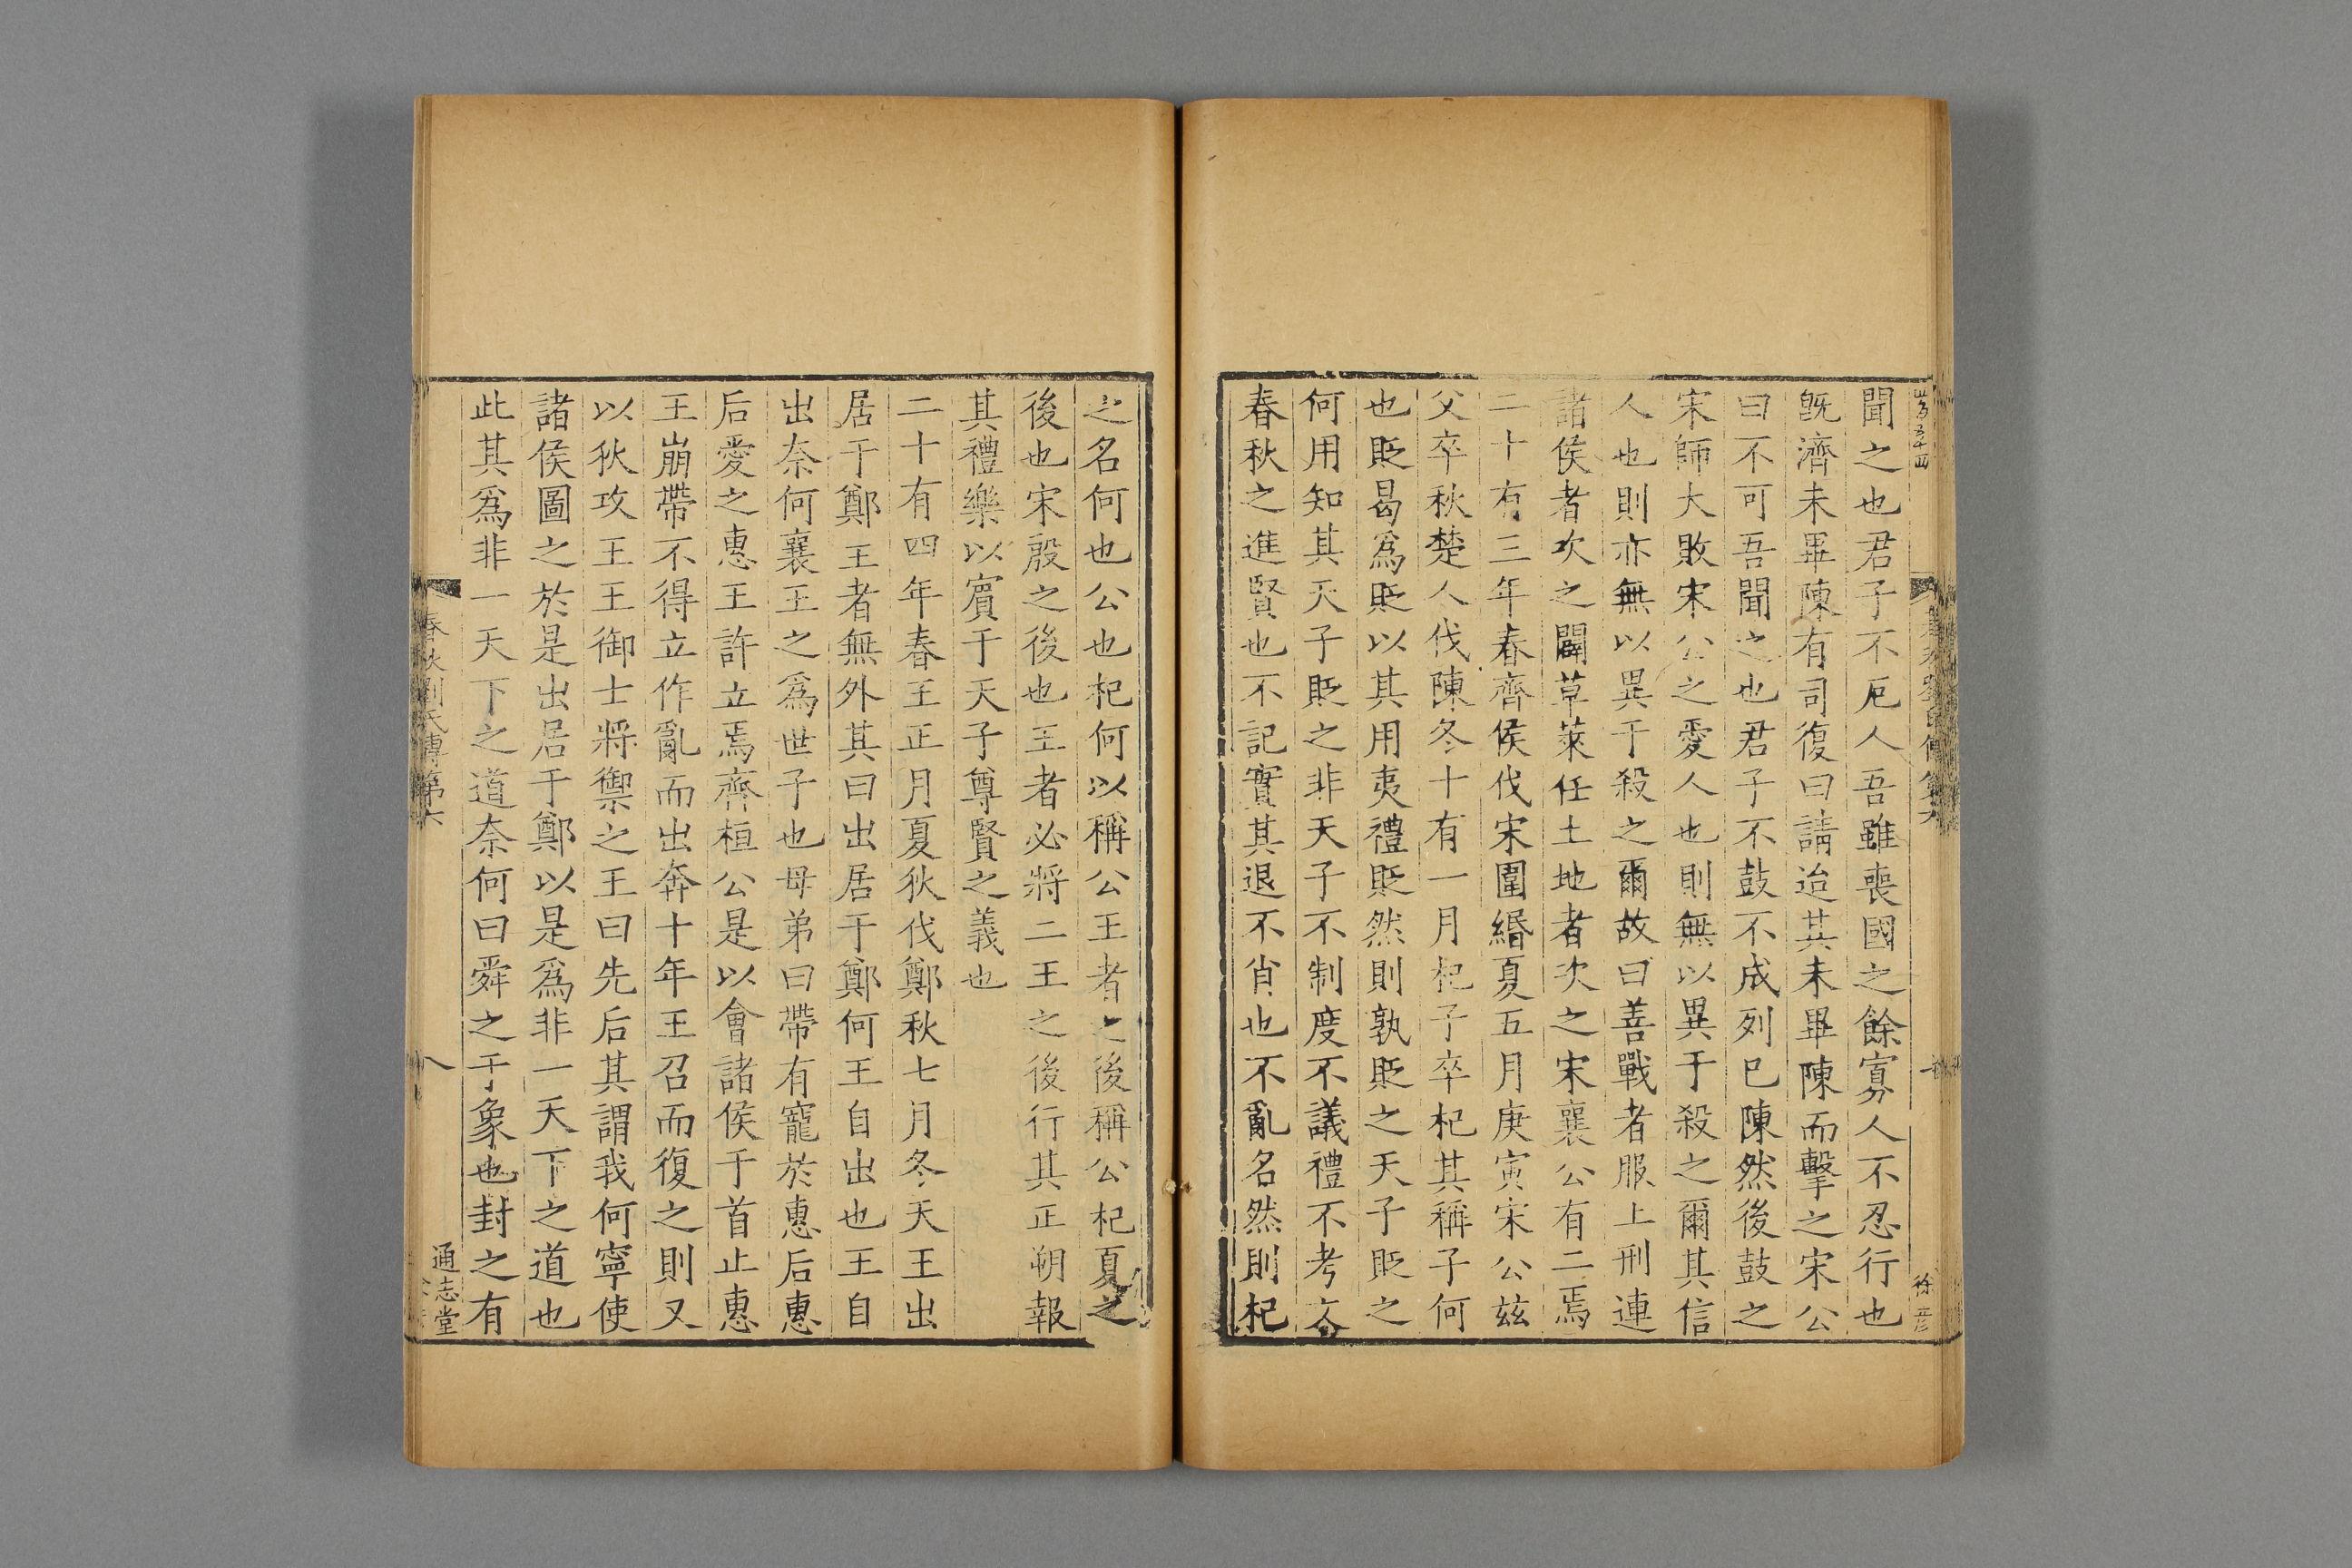 聞之也君子不厄人吾雖喪國之餘寡人不忍行也
旣濟未畢陳有司復曰請迨其未畢陳而擊之宋公
曰不可吾聞之也君子不鼓不成列已陳然後鼓之
宋師大敗宋公之愛人也則無以異于殺之爾其信
人也則亦無以異于殺之爾故曰善戰者服上刑連
諸侯者次之闢草萊任土地者次之宋襄公有二焉
二十有三年春齊侯伐宋圍緡夏五月庚寅宋公兹
父卒秋楚人伐陳冬十有一月杞子卒杞其稱子何
也貶曷爲貶以其用夷禮貶然則孰貶之天子貶之
何用知其天子貶之非天子不制度不議禮不考文
春秋之進賢也不記實其退不肖也不亂名然則杞
之名何也公也杞何以稱公王者之後稱公杞夏之
後也宋殷之後也王者必將二王之後行其正朔報
其禮樂以賓于天子尊賢之義也
二十有四年春王正月夏狄伐鄭秋七月冬天王出
居于鄭王者無外其曰出居于鄭何王自出也王自
出奈何襄王之爲世子也母弟曰帶有寵於惠后惠
后愛之惠王許立焉齊桓公是以會諸侯于首止惠
王崩帶不得立作亂而出奔十年王召而復之則又
以狄攻王王御士將禦之王曰先后其謂我何寧使
諸侯圖之於是出居于鄭以是爲非一天下之道也
此其爲非一天下之道奈何曰舜之于象也封之有
春秋劉氏傳第六
八
通志堂